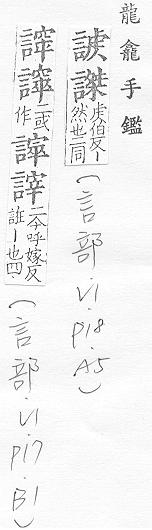 龍龕手鑑
謋虎伯反丨然也二同(言部.V1.P18.A5)
二或作 二今呼嫁反誑丨也四(言部.V1.P17.B1)